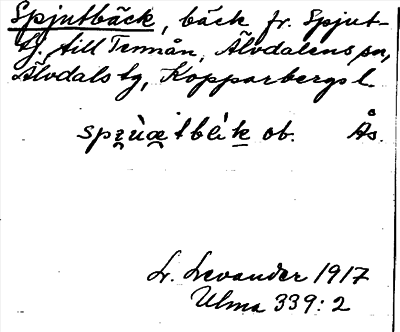 Spjutbäck, bäck fr. Spjut-
sj. till Tennån, Älvdalens sn,
Älvdals tg, Kopparbergs l.
ob. Ås.
L. Levander 1917
Ulma 339:2